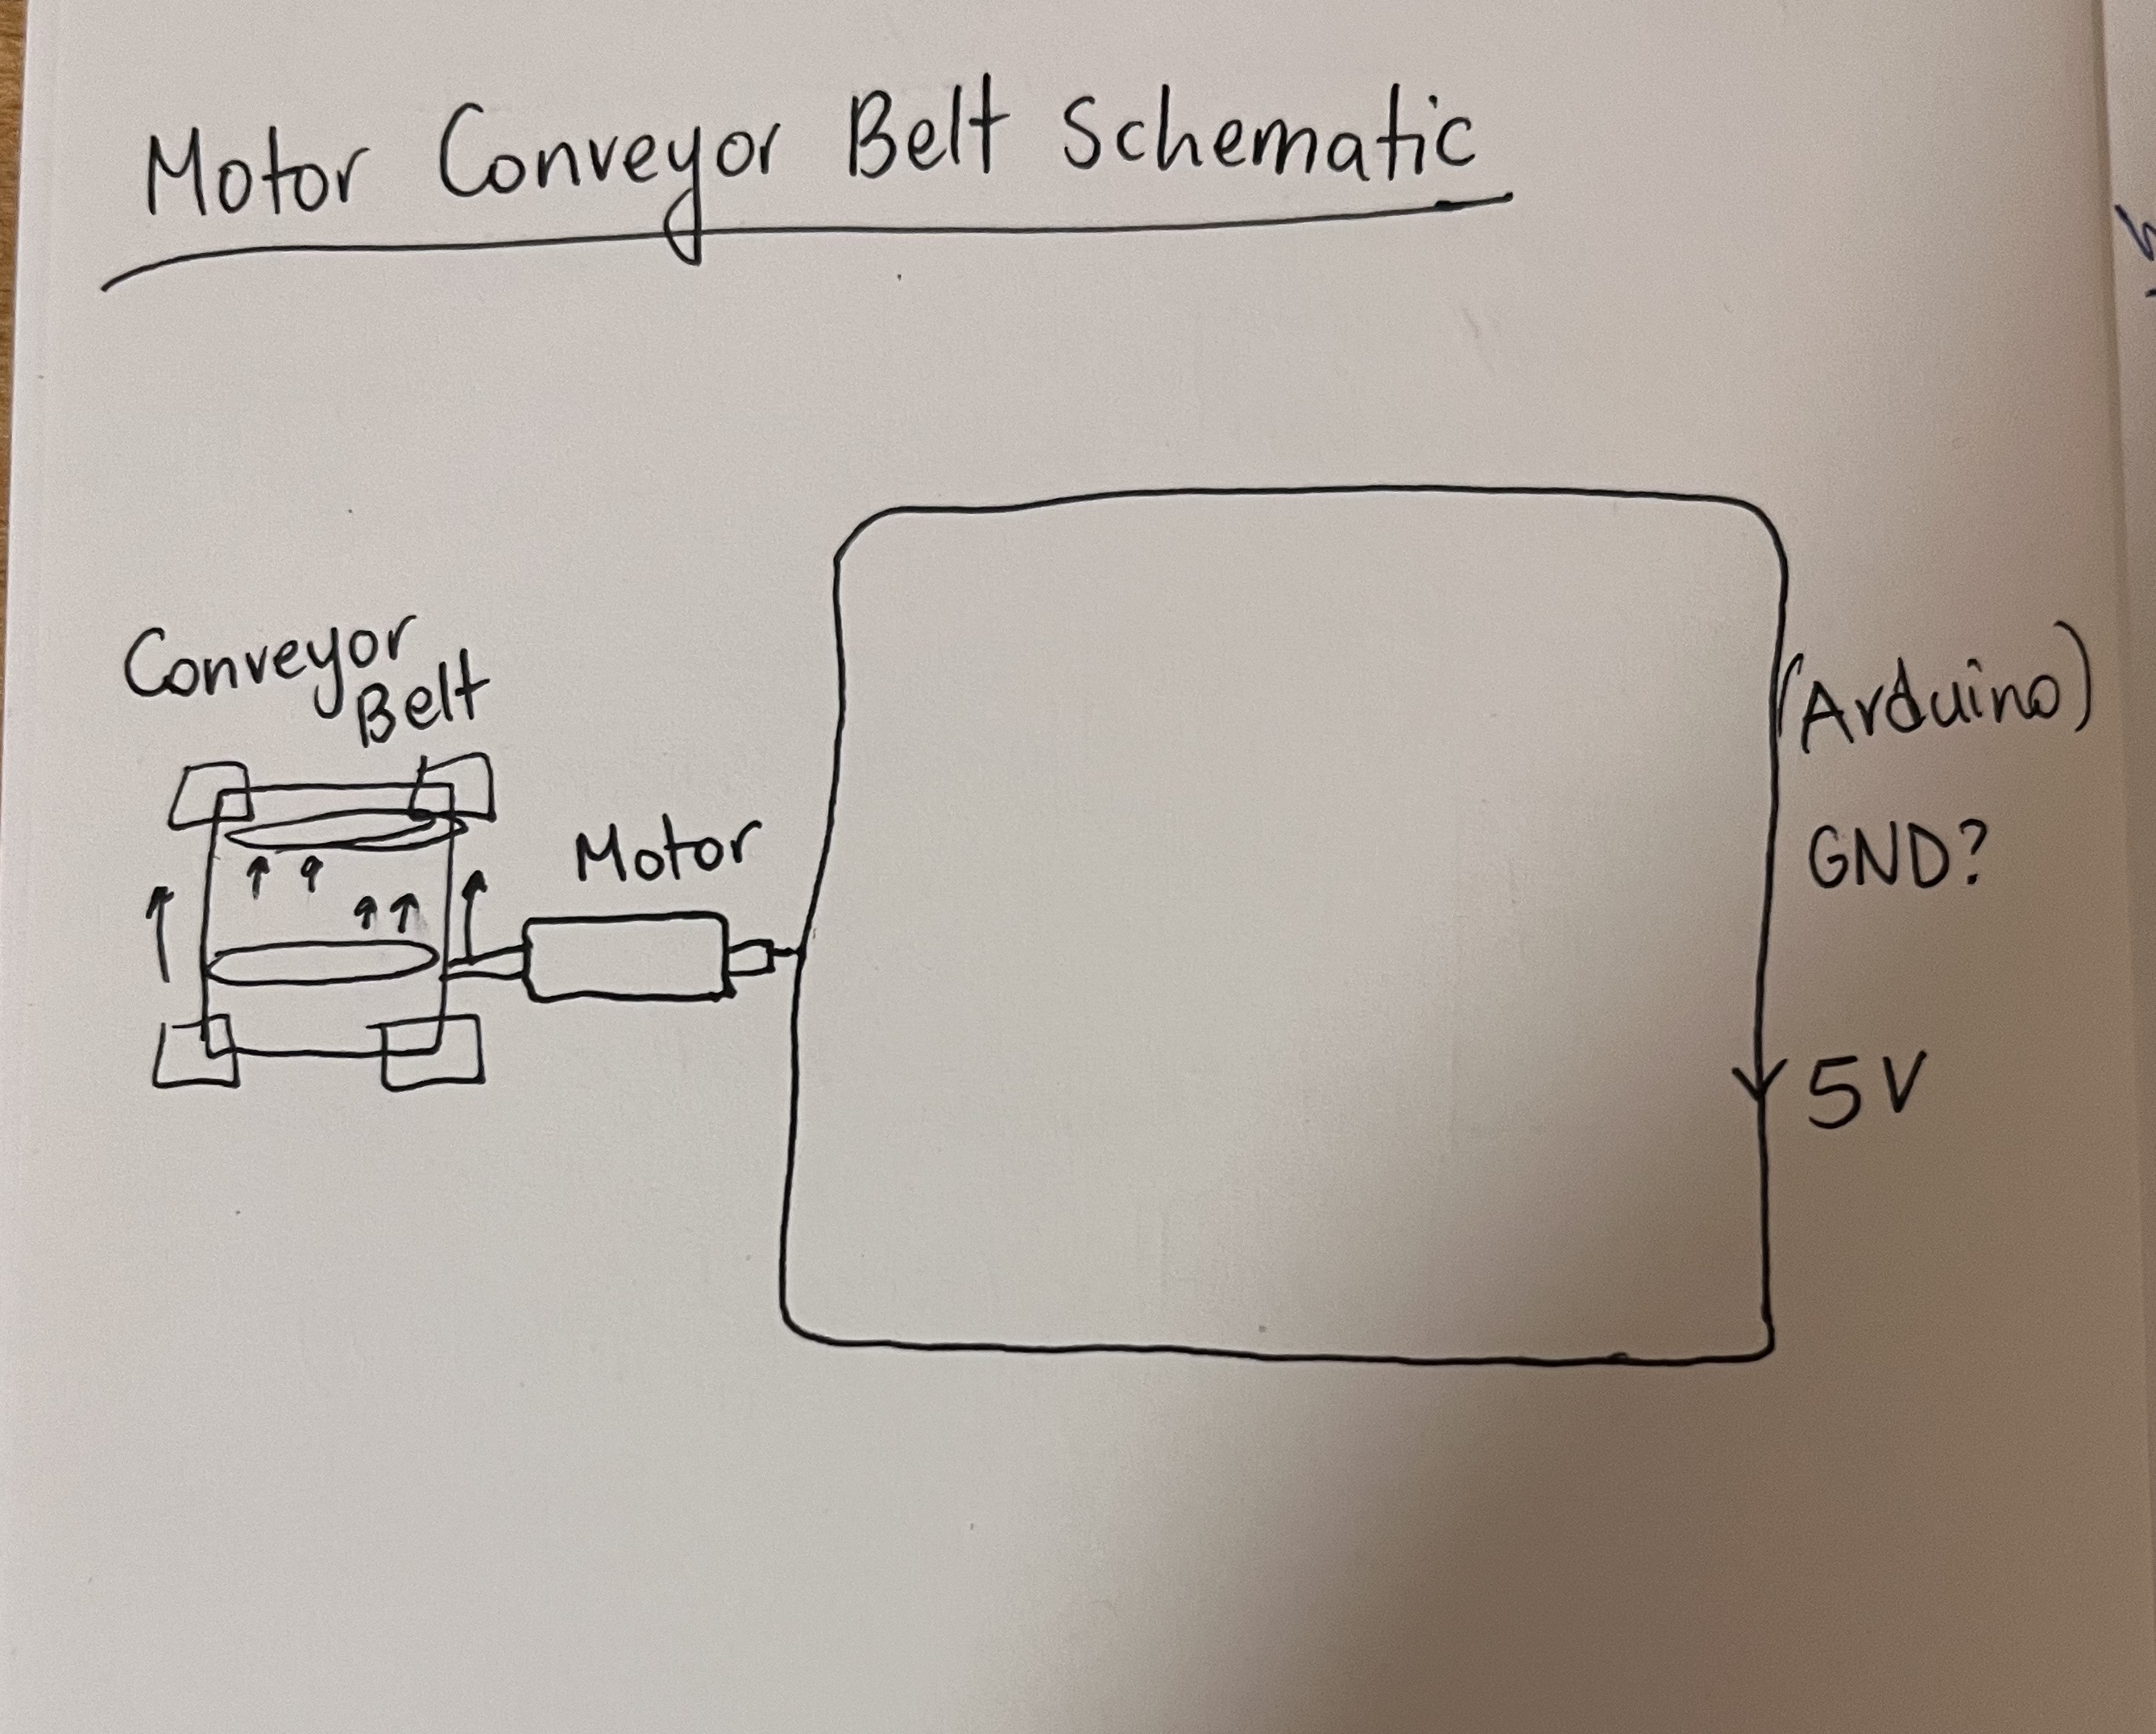 Motor Conveyor Belt Schematic
Conveyor
Belt
Motor
(Arduino)
GND?
5V